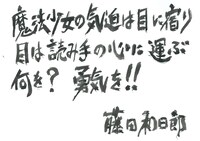 魔法少女の気迫は目に宿り
目は読み手の心に運ぶ
何を? 勇気を!!
藤田和日郎